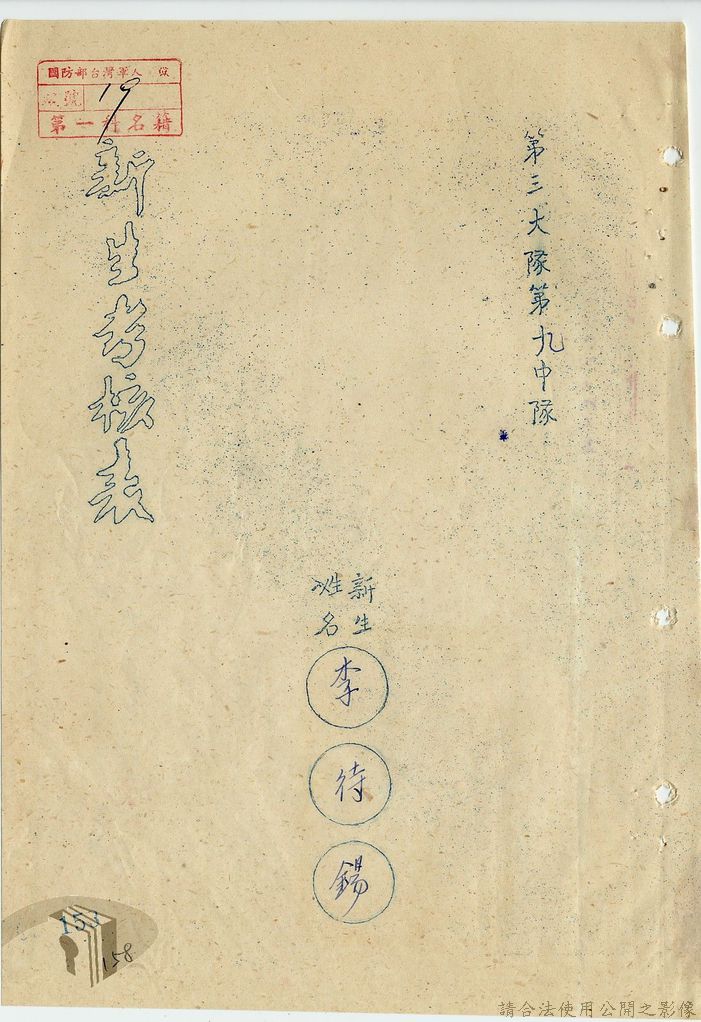 第三大隊第九中隊
新生
姓名
李
待
錫
新生考核表
國防部台灣軍人
號
19
第一科名籍
153
158
請合法使用公開之影像